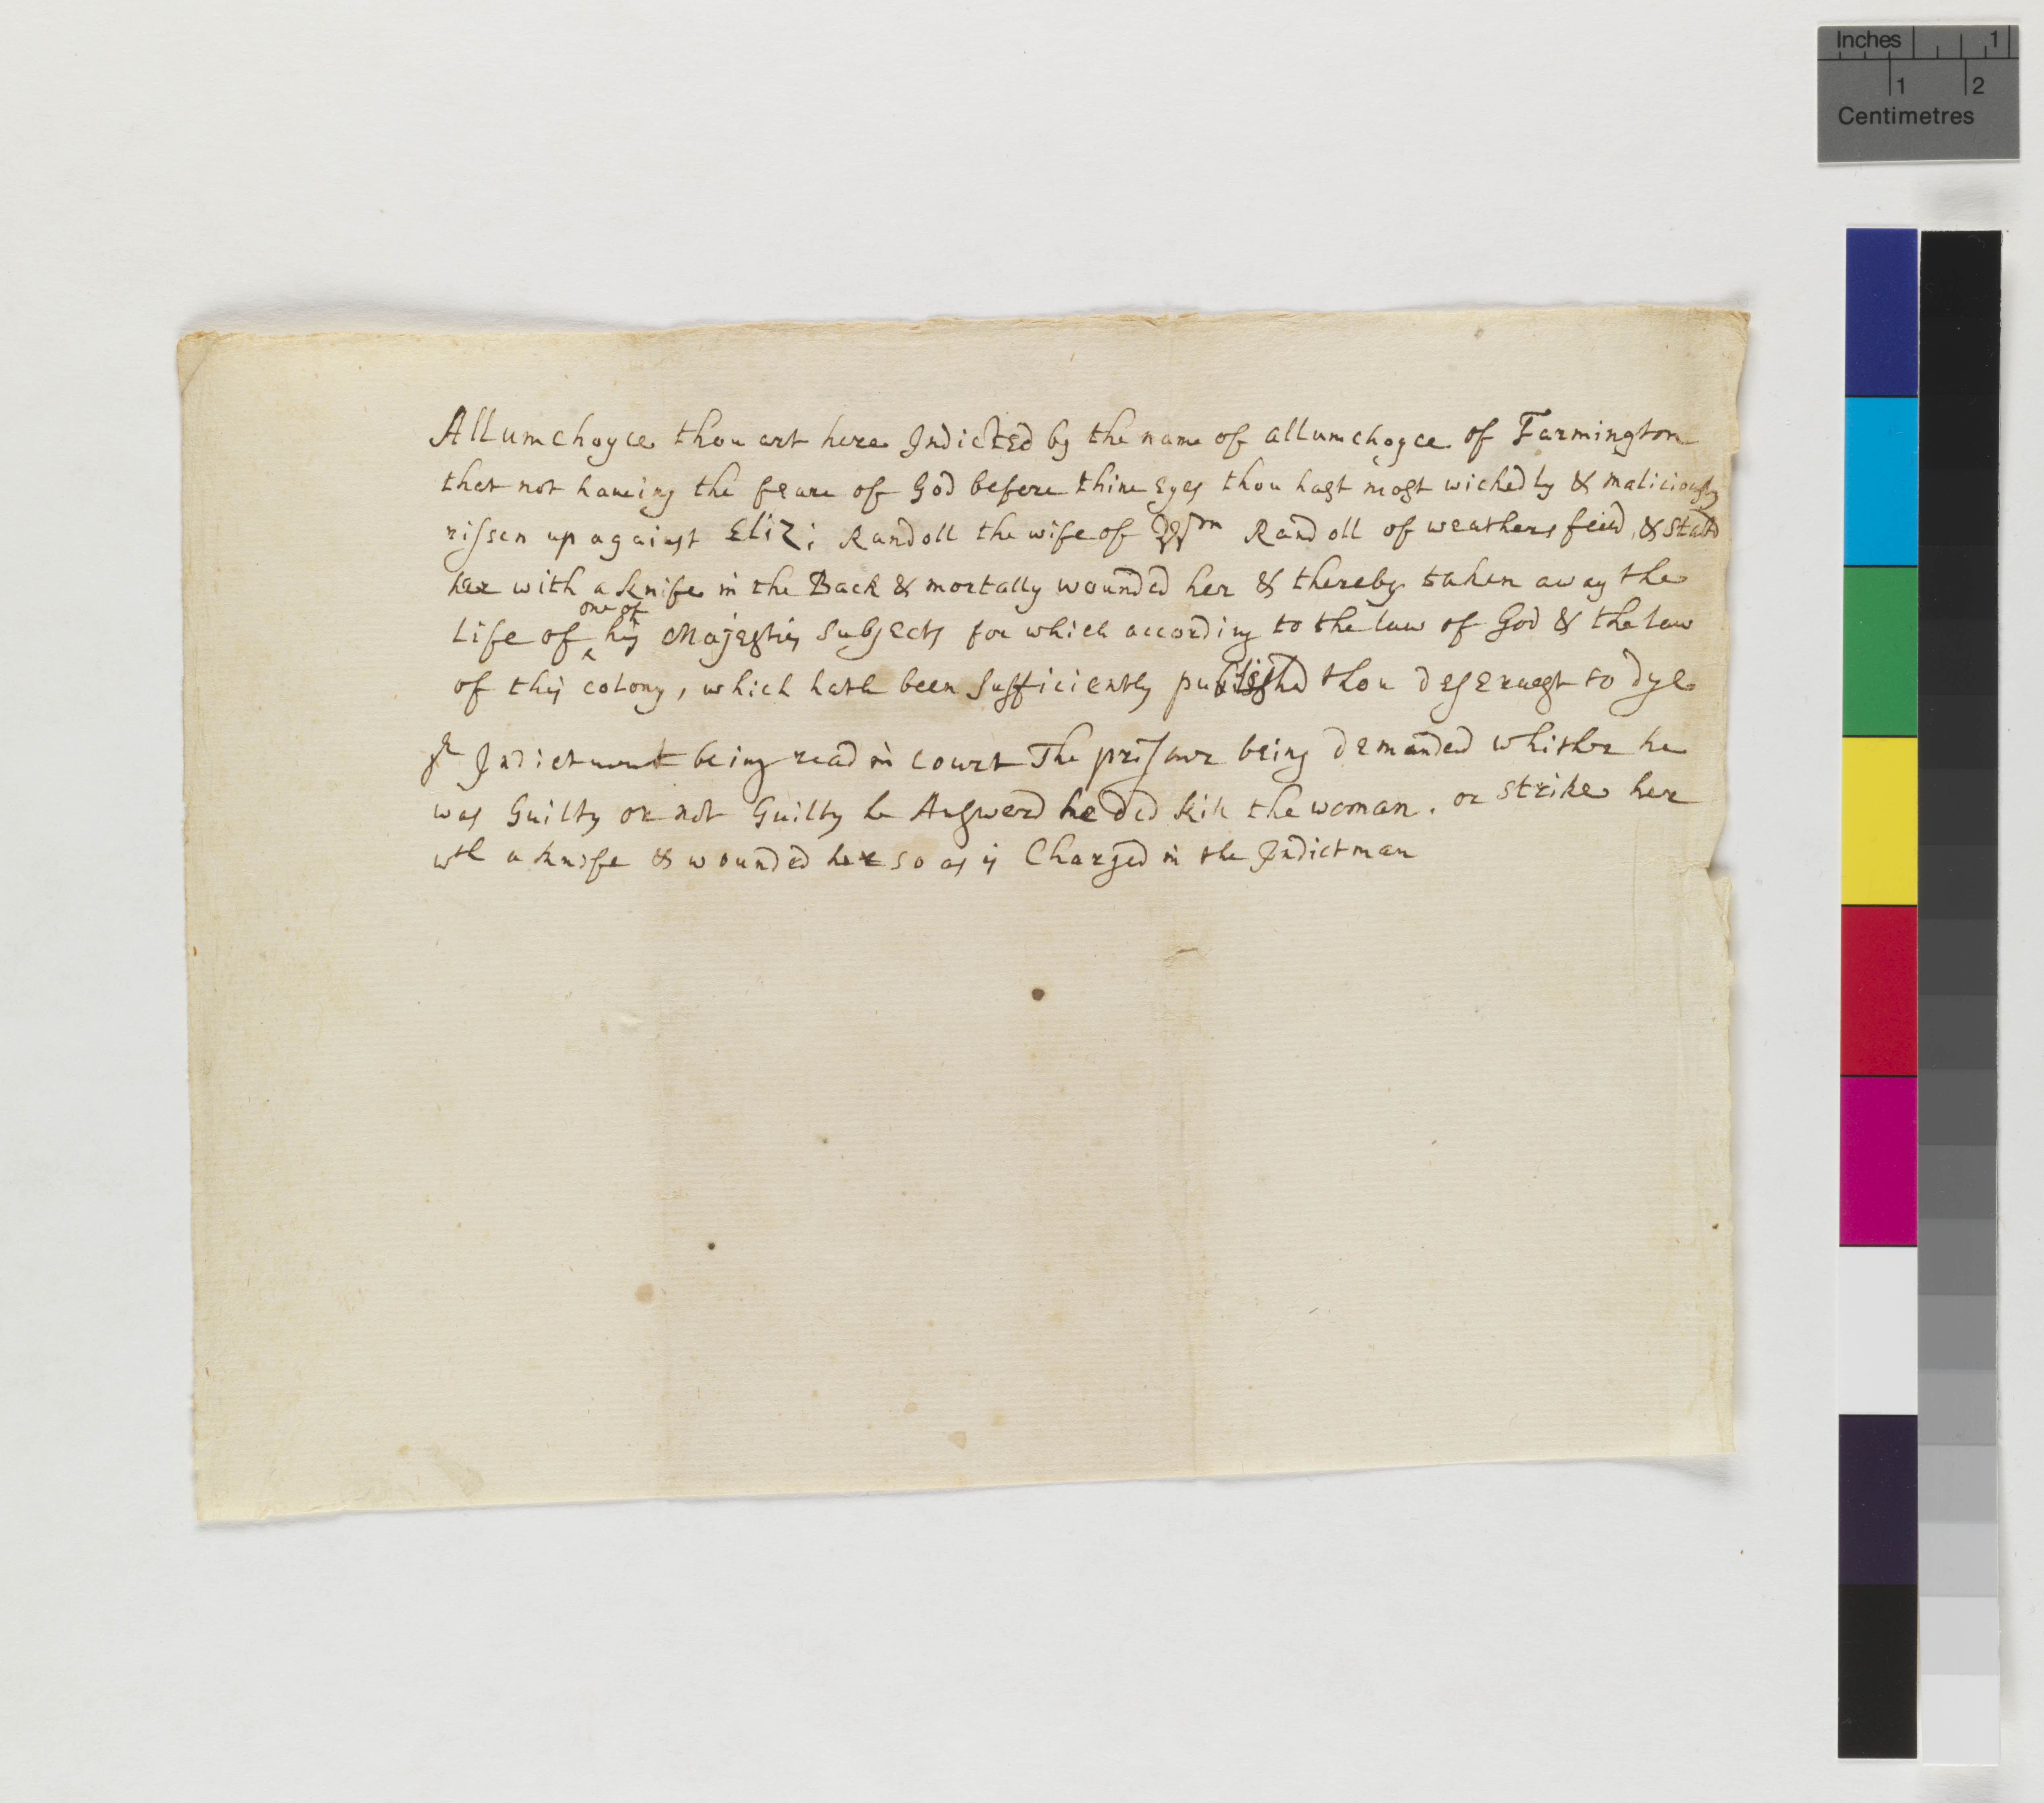 Allumchoyce thou art here Indicted by the name of allumchoyce of Farmington
that not haueing the feare of God before thine Eyes thou hast most wickedly & maliciously
rissen up against Eliz: Randoll the wife of Wm Randoll of weathersfeild, & Stabd
her with a knife in the Back & mortally wounded her & thereby taken away the
one of
Life of ^ his Majesties Subjects for which according to the law of God & the law
of this colony, which hath been Sufficiently published thou deseruest to dye
ye Indictment being read in Court The prisonr being demanded whither he
was Guilty or not Guilty he Answerd he did kill the woman. or strike her
wth a knife & wounded her so as is Charged in the Indictman
Inches 1
1 2
Centimetres